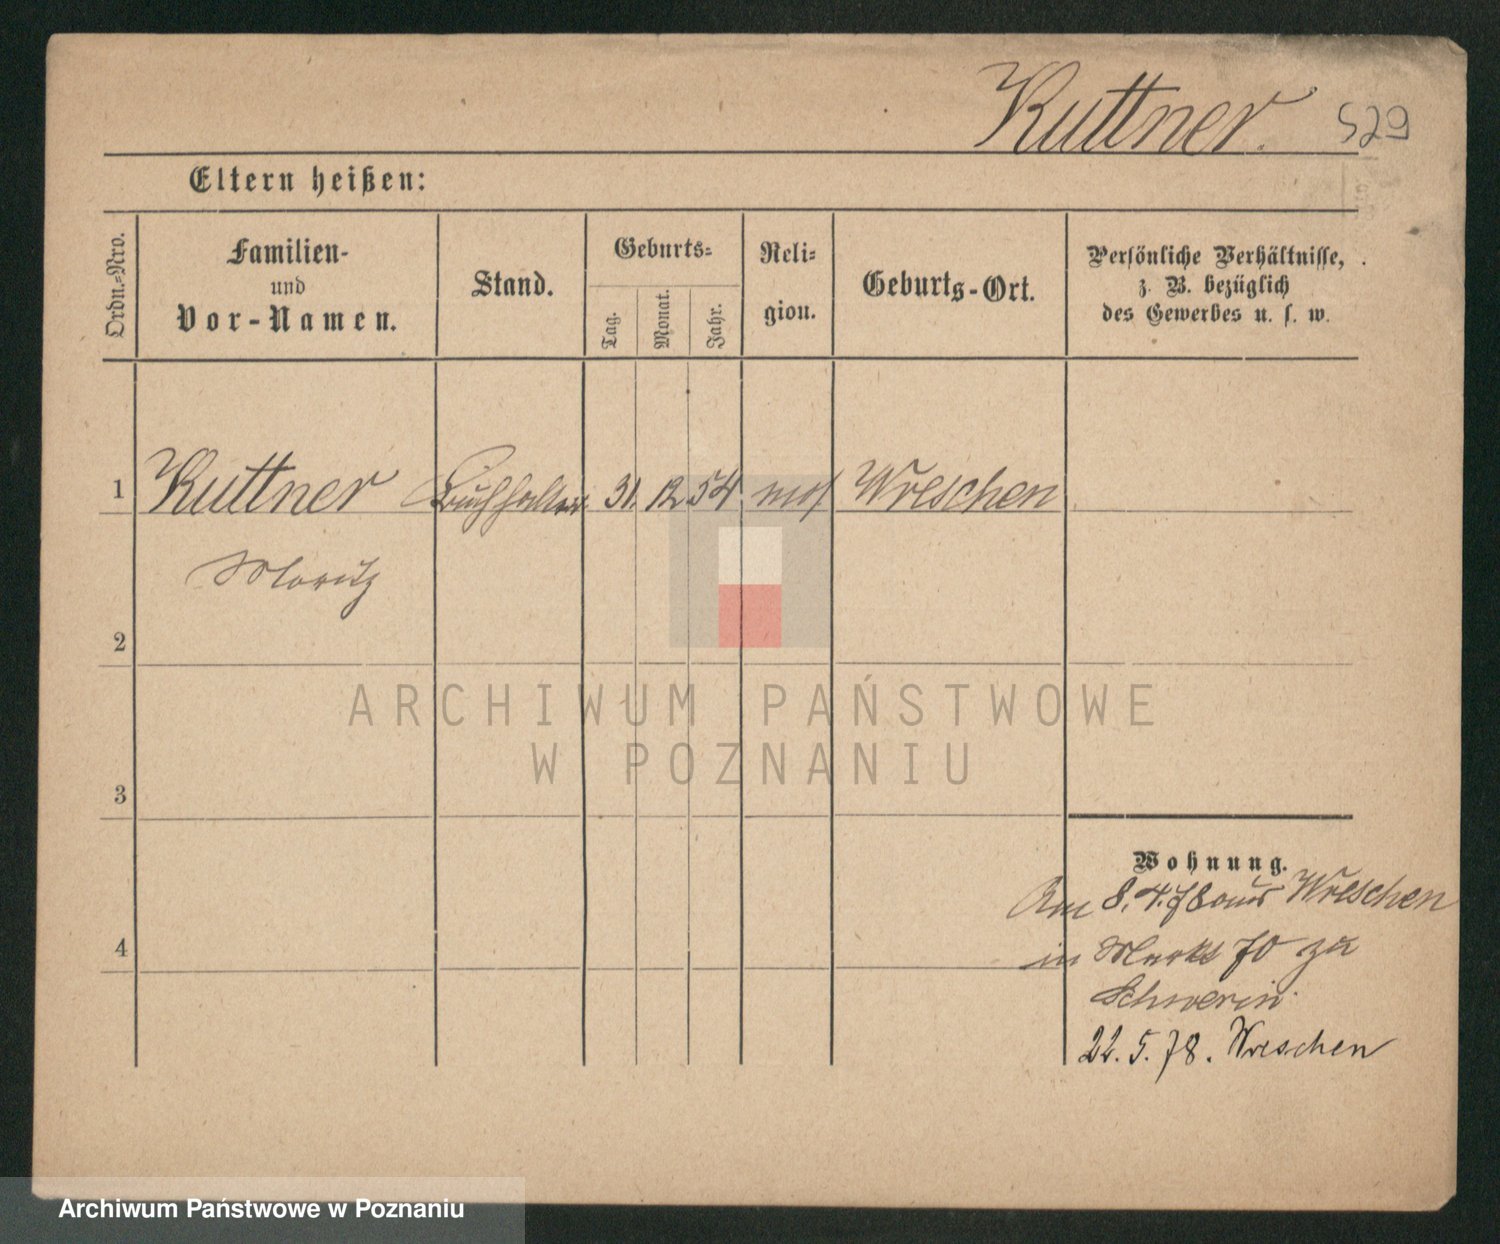 Kuttner. 529
Eltern heißen:
Ordn.-Nro.
Familien-
und
Vor-Namen.
Stand.
Geburts-
Tag.
Monat.
Jahr.
Reli-
gion.
Geburts-Ort.
Persönliche Verhältnisse,
z. B. bezüglich
des Gewerbes u. s. w.
1 Kuttner Buchhalter 31. 12 54 mos. Wreschen
Moritz
2
3
4
ARCHIWUM PAŃSTWOWE
W POZNANIU
Wohnung.
Am 8. 4. 78 aus Wreschen
in Markt 70 zu
Schwerin.
22. 5. 78. Wreschen
Archiwum Państwowe w Poznaniu